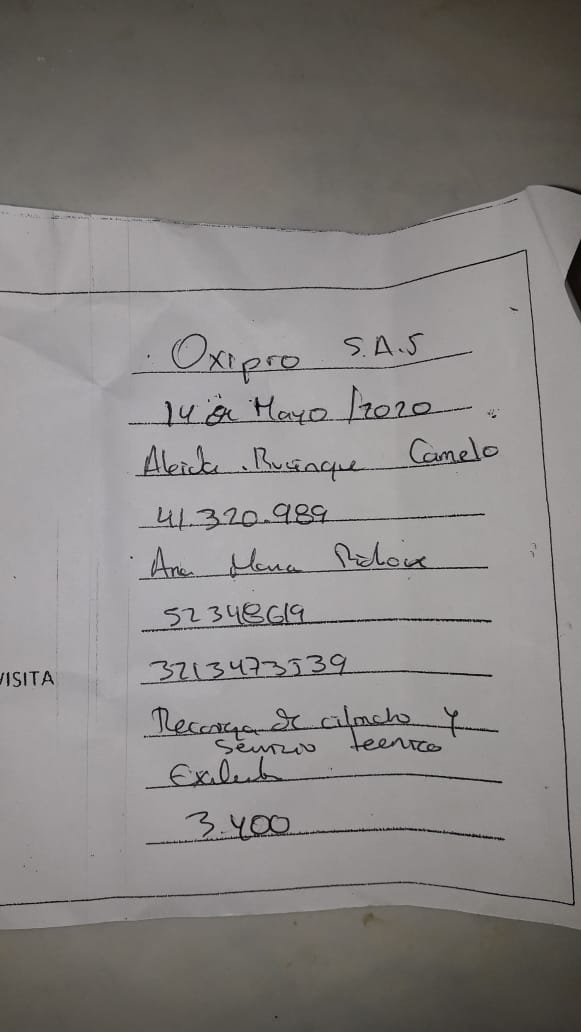 Oxipro S.A.S
14 de Mayo/2020
Aleida Camelo
41.320.989
Ana Maria
52348619
3213473539
VISITA
Recarga de cilindro y
servicio tecnico
3.400